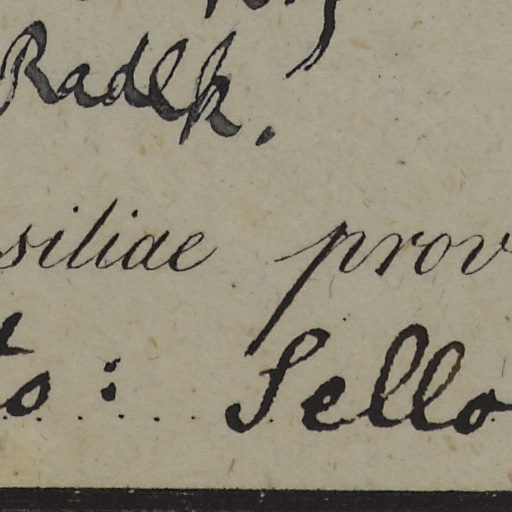 Radlk.
siliae prov
to: Sello